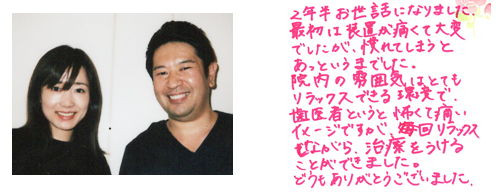 2年半お世話になりました。
最初は装置が痛くて大変
でしたが、慣れてしまうと
あっというまでした。
院内の雰囲気はとても
リラックスできる環境で、
歯医者というと怖くて痛い
イメージですが、毎回リラックス
しながら、治療をうける
ことができました。
どうもありがとうございました。